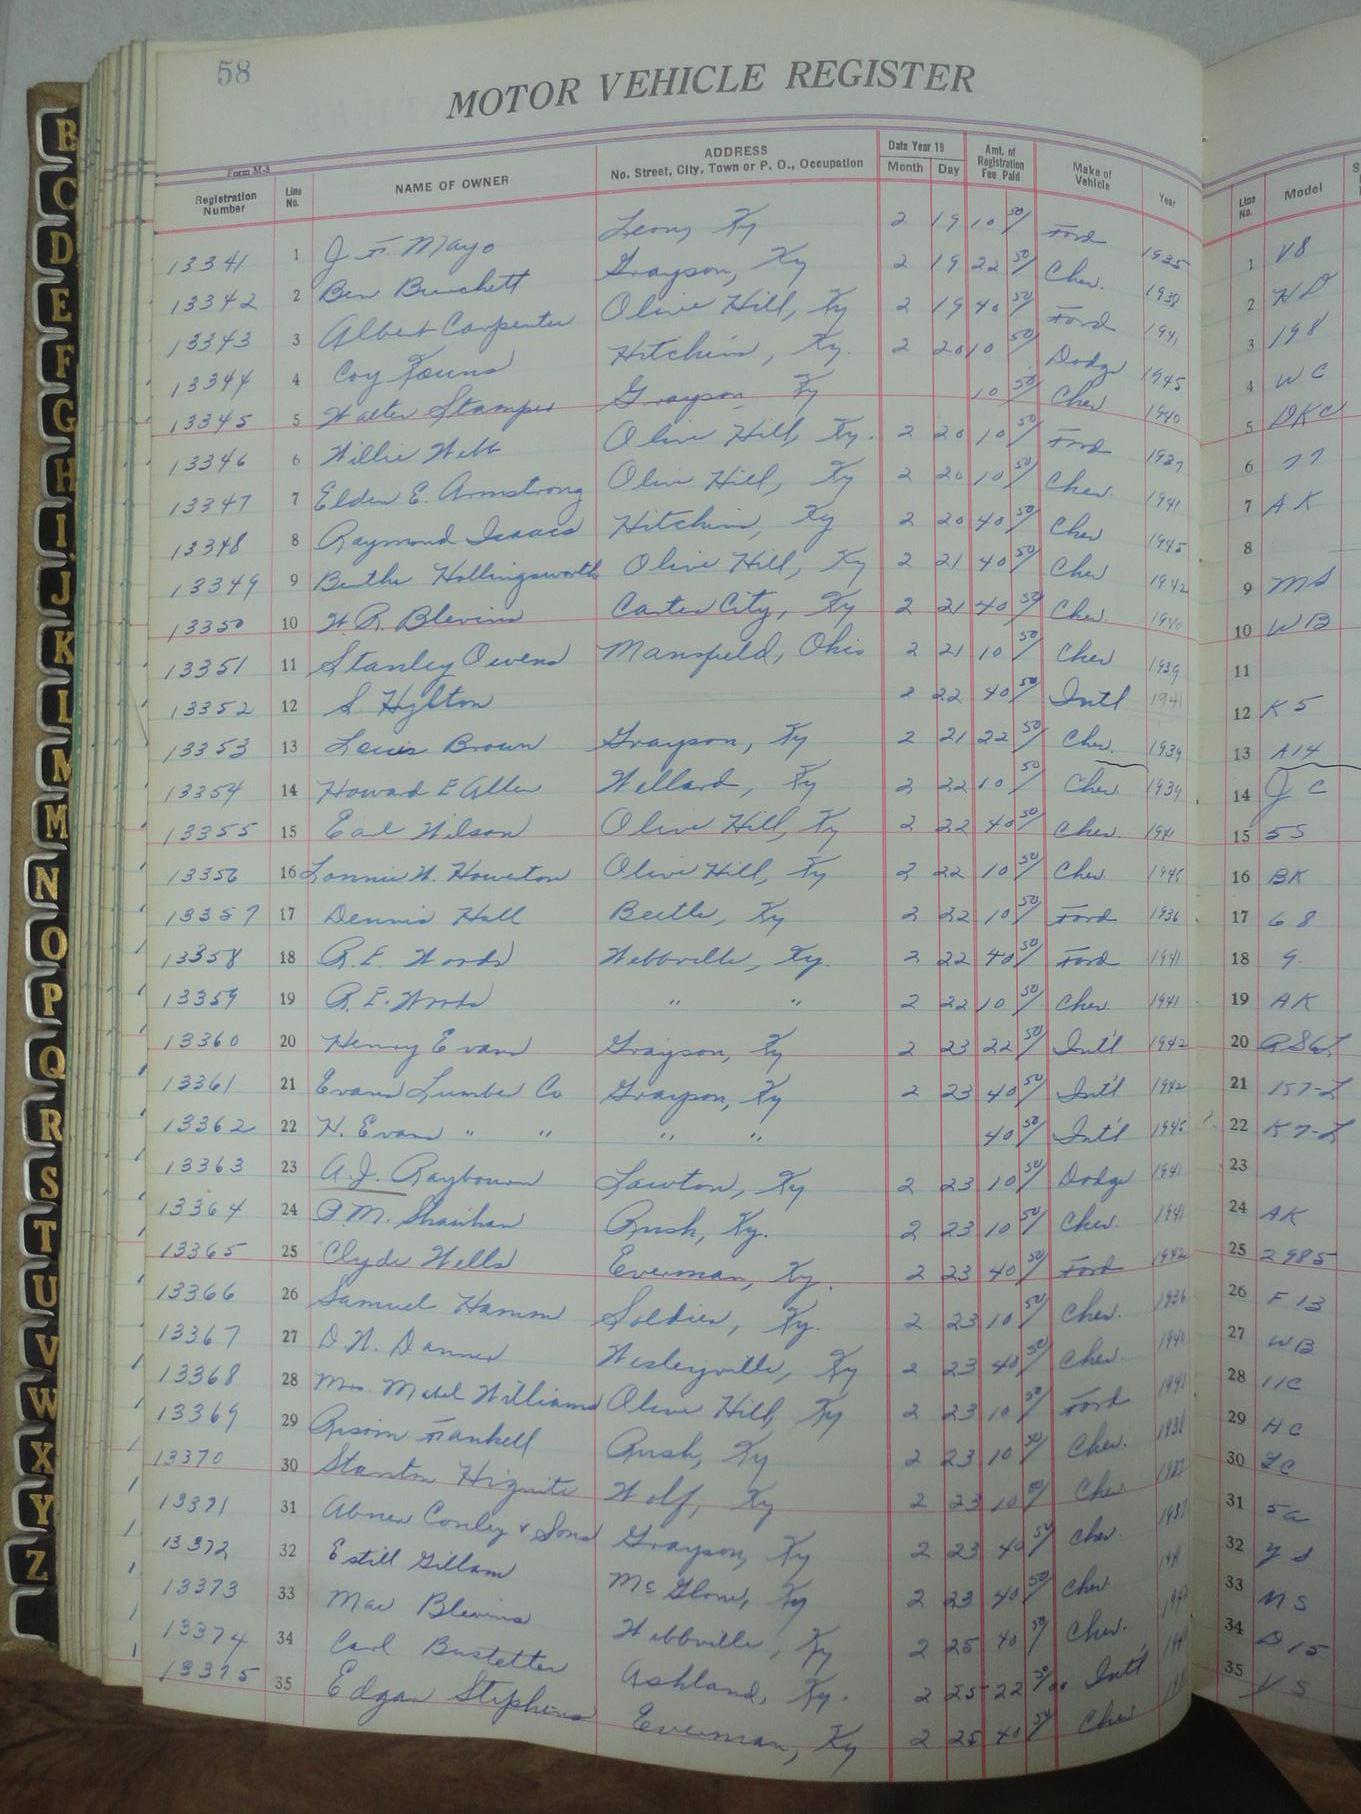 58
MOTOR VEHICLE REGISTER
Form M-5
Registration Number Line No. NAME OF OWNER ADDRESS No. Street, City, Town or P. O., Occupation Date Year 19 Month Day Amt. of Registration Fee Paid Make of Vehicle Year Line No. Model
13341 1 J. F. Mayo Leon, Ky 2 19 10 50 Ford 1935 1 V8
13342 2 Ben Burchett Grayson, Ky 2 19 22 50 Chev. 1938 2 HD
13343 3 Albert Carpenter Olive Hill, Ky 2 19 40 50 Ford 1941 3 198
13344 4 Coy Kouns Hitchins, Ky. 2 20 10 50 Dodge 1945 4 WC
13345 5 Walter Stamper Grayson, Ky 10 50 Chev 1940 5 DKC
13346 6 Willie Webb Olive Hill, Ky. 2 20 10 50 Ford 1937 6 77
13347 7 Elden E. Armstrong Olive Hill, Ky 2 20 10 50 Chev. 1941 7 AK
13348 8 Raymond Isaacs Hitchins, Ky 2 20 40 50 Chev 1945 8
13349 9 Bertha Hollingsworth Olive Hill, Ky 2 21 40 50 Chev 1942 9 MS
13350 10 W. R. Blevins Carter City, Ky 2 21 40 50 Chev. 1940 10 WB
13351 11 Stanley Owens Mansfield, Ohio 2 21 10 50 Chev 1939 11
13352 12 S. Hylton 2 22 40 50 Int'l 1941 12 K5
13353 13 Louis Brown Grayson, Ky 2 21 22 50 Chev. 1939 13 A14
13354 14 Howard E Allen Willard, Ky 2 22 10 50 Chev 1939 14 JC
13355 15 Earl Wilson Olive Hill, Ky 2 22 40 50 Chev. 1941 15 5S
13356 16 Lonnie W. Howerton Olive Hill, Ky 2 22 10 50 Chev. 1941 16 BK
13357 17 Dennis Hall Beetle, Ky 2 22 10 50 Ford 1936 17 68
13358 18 R. E. Woods Webbville, Ky. 2 22 40 50 Ford 1941 18 9
13359 19 R. E. Woods " " 2 22 10 50 Chev. 1941 19 AK
13360 20 Henry Evans Grayson, Ky 2 23 22 50 Int'l 1942 20
13361 21 Evans Lumber Co Grayson, Ky 2 23 40 50 Int'l 1942 21 157-L
13362 22 H. Evans " " " " 40 50 Int'l 1945 22 K7-L
13363 23 A. J. Raybourn Lawton, Ky 2 23 10 50 Dodge 1941 23
13364 24 P. M. Rush, Ky. 2 23 10 50 Chev. 1941 24 AK
13365 25 Clyde Wells Everman, Ky. 2 23 40 50 Ford 1942 25 298S
13366 26 Samuel Hamm Soldier, Ky. 2 23 10 50 Chev. 1936 26 F13
13367 27 D. W. Danner Wesleyville, Ky 2 23 40 50 Chev. 1940 27 WB
13368 28 Mrs. Mabel Williams Olive Hill, Ky 2 23 10 50 Ford 1941 28 11C
13369 29 Rush, Ky 2 23 10 50 Chev. 1938 29 HC
13370 30 Stanton Hignite Wolf, Ky 2 23 10 50 Chev 1937 30 GC
13371 31 Abner Conley & Sons Grayson, Ky 2 23 40 50 Chev. 1937 31 Sa
13372 32 Estill Gillam McGlone, Ky 2 23 40 50 Chev 32 YS
13373 33 Mae Blevins Webbville, Ky 2 25 40 50 Chev. 33 MS
13374 34 Carl Bustetter Ashland, Ky. 2 25 22 50 Int'l 34 D15
13375 35 Edgar Stephens Everman, Ky 2 25 40 50 Chev 35 VS
B
C
D
E
F
G
H
I
J
K
L
M
M
N
O
P
Q
R
S
T
U
V
W
X
Y
Z